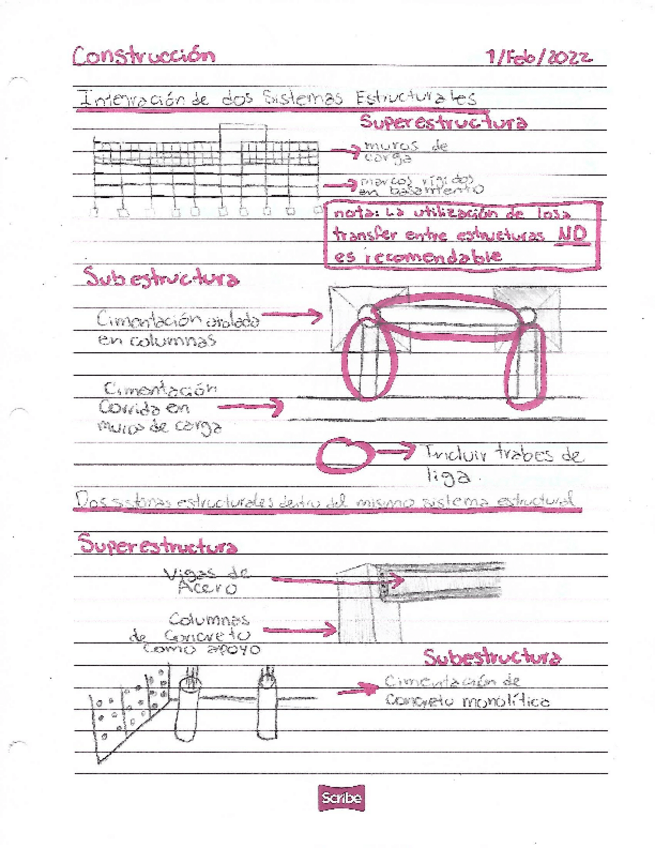 Construcción 1/Feb/2022
Integración de dos Sistemas Estructurales
Superestructura
muros de
carga
marcos rígidos
en basamento
nota: La utilización de losa
transfer entre estructuras NO
es recomendable
Subestructura
Cimentación aislada
en columnas
Cimentación
Corrida en
muros de carga
Incluir trabes de
liga.
Dos sistemas estructurales dentro del mismo sistema estructural
Superestructura
Vigas de
Acero
Columnas
de Concreto
como apoyo
Subestructura
Cimentación de
Concreto monolítica
Scribe